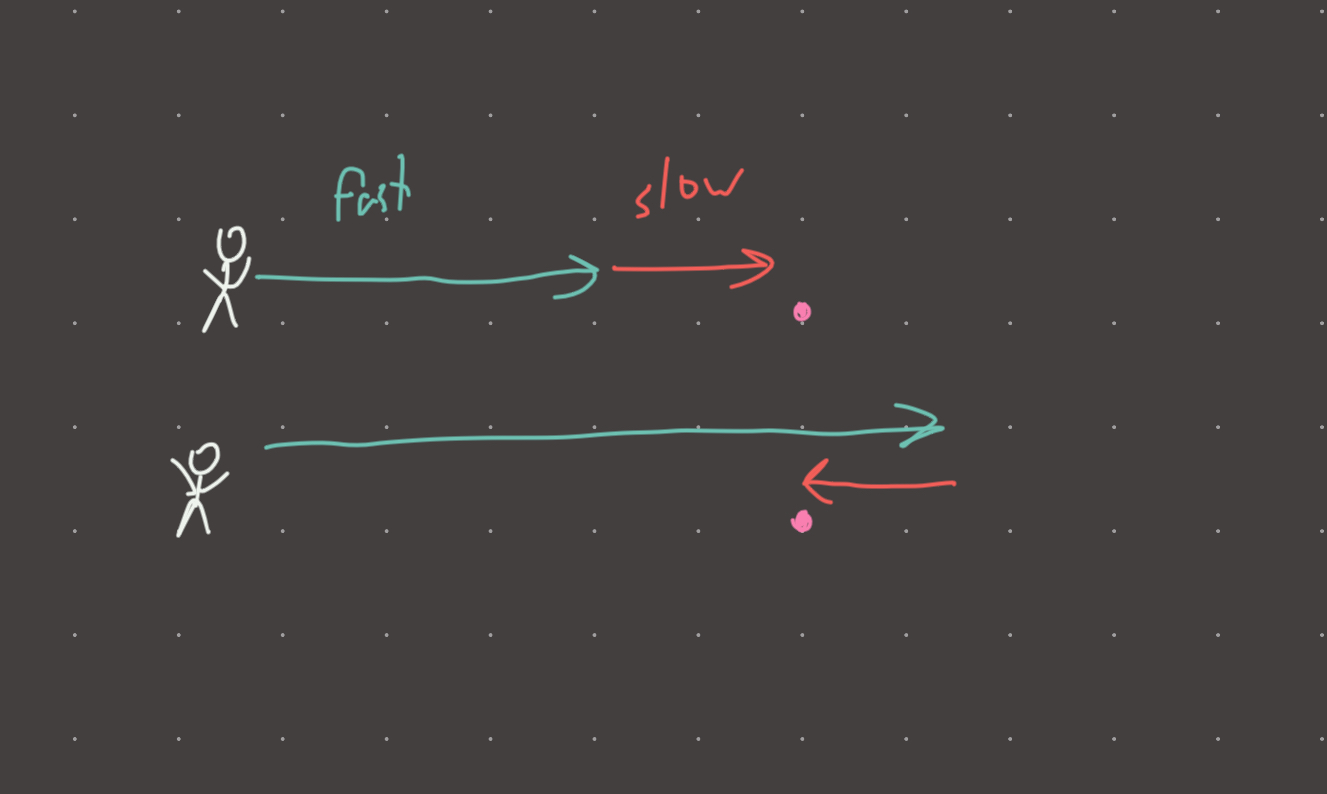 fast
slow